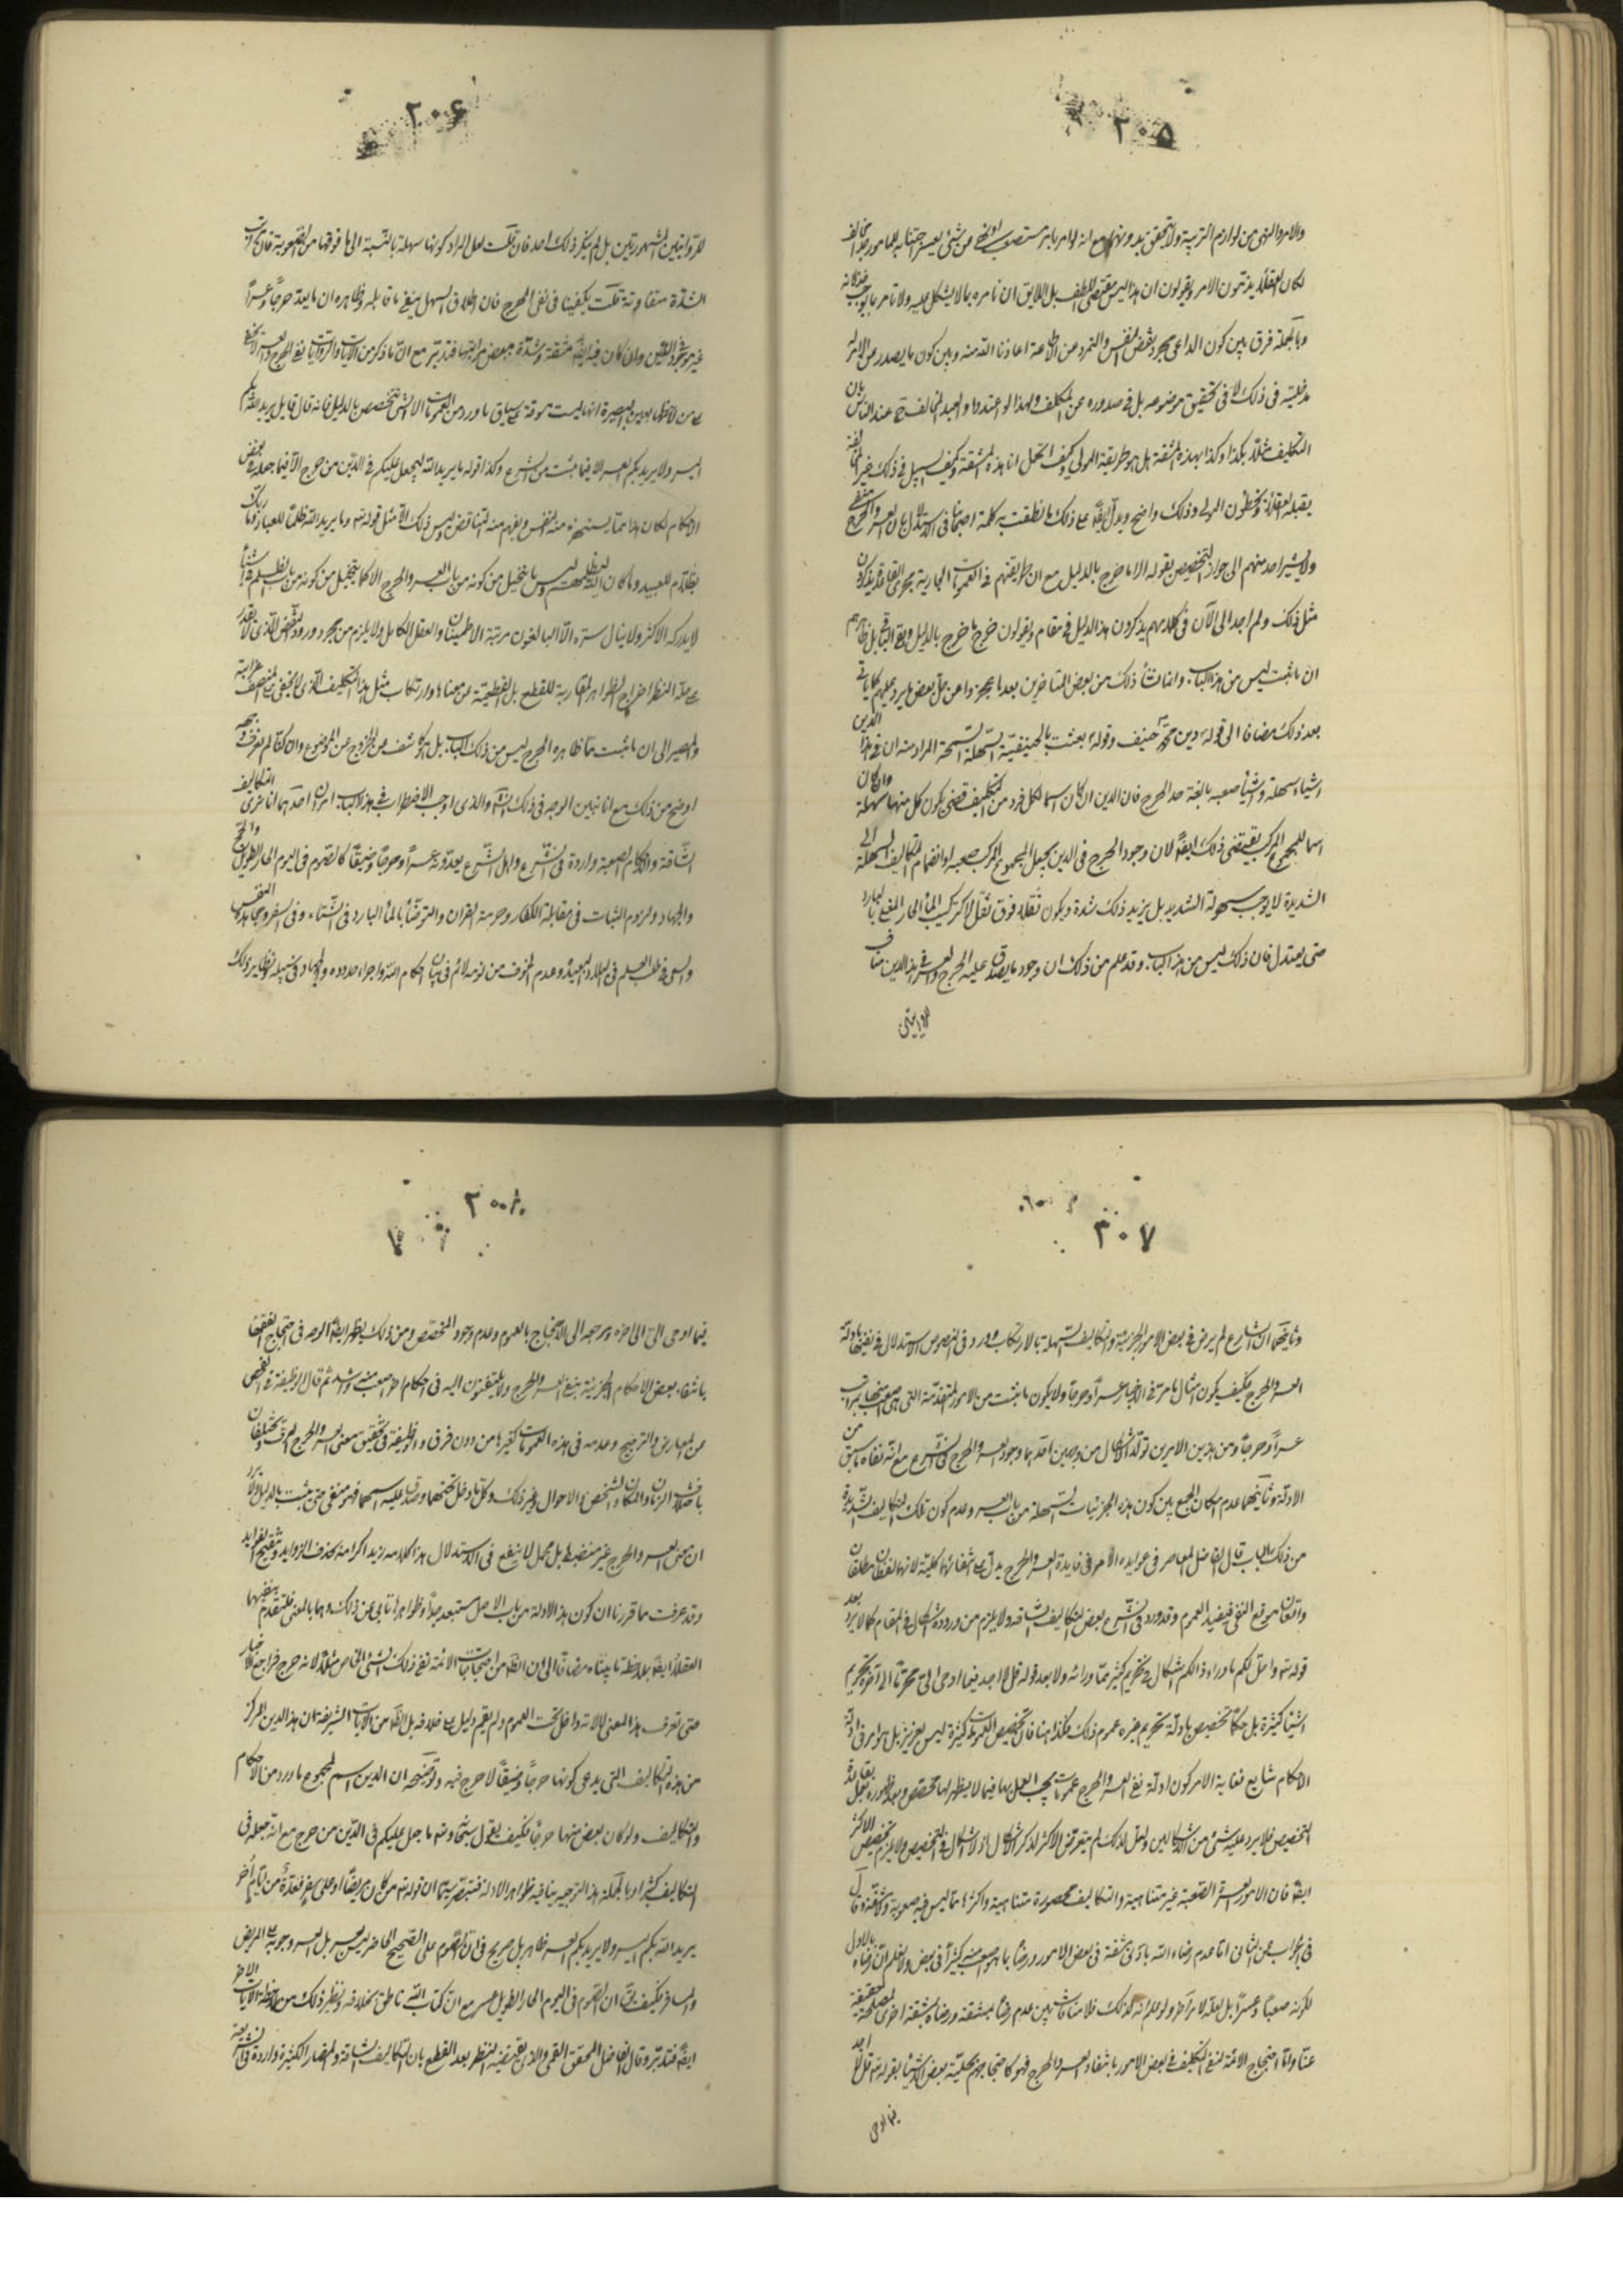 ٢٠٥
والامر والنهى من لوازم التربية ولا يتحقق بدونهما مع انه لو امر بامر مستصعب او نهى عن شئ يعسر اجتنابه
لكان العقلاء يذمون الامر ويقولون ان هذا ليس مقتضى اللطف بل اللايق ان تامره بما لا يشكل عليه ولا تامر بما يوجب
وبالجملة فرق بين كون الداعى مجرد بغض النفس والتمرد عن الاطاعة اعاذنا الله منه وبين كون ما يصدر عن الامر له
مدخلية فى ذلك لا فى تحقيق موضوعه بل فى صدوره عن المكلف ولهذا لو اعتذروا العبيد المخالف عند الناس بان
التكليف مثلا بكذا وكذا بهذه المشقة هل هو طريقة المولى وكيف اتحمل انا هذه المشقة وكيف السبيل فى ذلك
يقبله العقلاء ويخطئون المولى وذلك واضح ويدل ايضا على ذلك ما نطقت به كلمة اصحابنا فى الاستدلال بان العسر والحرج
ولا يشير احد منهم الى جواز التخصيص بقوله الا ما خرج بالدليل مع ان طريقتهم فى العمومات الجارية مجرى القاعدة يذكرون
مثل ذلك ولم اجد الى الآن فى كلامهم يذكرون هذا الدليل فى مقام ويقولون خرج ما خرج بالدليل وبقى الباقى بل
ان ما ثبت ليس من هذا الباب وانما نشأ ذلك من بعض المتاخرين بعدما عجزوا عن حل بعض ما يرد عليهم كما ياتى
بعد ذلك مضافا الى قوله دين محمد حنيف وقوله بعثت بالحنيفية السهلة السمحة المراد منه ان فى هذا الدين
اشياء سهلة واشياء صعبة بالغة حد الحرج فان الدين ان كان اسما لكل فرد من التكليف فيقضى كون كل منها سهلة وان كان
اسما للمجموع المركب فيقتضى ذلك ايضا لان وجود الحرج فى الدين يجعل المجموع المركب صعبا وانضمام التكاليف السهلة الى
الشديدة لا يوجب سهولة الشديد بل يزيد ذلك شدة ويكون ثقله فوق ثقل الاكتركيب الماء الحار المغلى بالبارد
حتى يعتدل فان ذلك ليس من هذا الباب وقد علم من ذلك ان وجود ما يصدق عليه الحرج والعسر فى هذا الدين مناف
للروايتين
٢٠۶
للروايتين المشهورتين بل لم ينكر ذلك احد فان قلت لعل المراد كونها سهلة بالنسبة الى ما فوقها من الصعوبة فان مراتب
الشدة متفاوتة قلت يكفينا فى نفى الحرج فان اطلاق السهل ينفى ما قابله وظاهره ان ما يعد حرجا وعسرا
غير موجود فى الدين وان كان فيه ايضا مشقة وشدة ببعض مراتبها فتدبر مع ان ما ذكر من الآيات والروايات فى نفى الحرج والعسر لا يخفى
على من لاحظها بعين البصيرة انها ليست مسوقة على سياق ما ورد من العمومات الا التى تخصص بالدليل فانه قال قايل يريد الله بكم
اليسر ولا يريد بكم العسر الا فيما ثبت من الشرع وكذا قوله ما يريد الله ليجعل عليكم فى الدين من حرج الا فيما جعله فى بعض
الاحكام لكان هذا مما يستهزء منه النفس ويفهم منه التناقض وليس ذلك الا مثل قوله وما يريد الله ظلما للعباد وما ربك
بظلام للعبيد وما كان الله ليظلمهم وليس ما يتخيل من كونه من باب العسر والحرج الا كما يتخيل من كونه من باب الظلم
لا يدركه الاكثر ولا ينال سره الا البالغون مرتبة الاطمينان والعقل الكامل ولا يلزم من مجرد ورود النقض الذى لا نقدر
على حله النظر اخراج الظواهر المقاربة للقطع بل القطعية عن معناها وارتكاب مثل هذا التكليف الذى لا يخفى على المنصف غرابته
والمصير الى ان ما ثبت مما ظاهره الحرج ليس من ذلك الباب بل هو كاشف عن الخروج عن الموضوع وان كنا لم نعرف وجهه
اوضح من ذلك مع انا نبين الوجه فى ذلك انش والذى اوجب الاضطراب فى هذا الباب امران احدهما انا نرى التكاليف
الشاقة والاحكام الصعبة واردة فى الشرع واهل الشرع يعدونه عسرا وحرجا وضيقا كالصوم فى اليوم الحار الطويل والحج
والجهاد ولزوم الثبات فى مقابلة الكفار وحرمة الفرار والتوضأ بالماء البارد فى الشتاء وفى السفر ومجاهدة النفس
والسعى فى طلب العلم فى البلاد البعيدة وعدم الخوف من لومة لائم فى بيان احكام الله واجراء حدوده والجهاد فى سبيله ونظاير ذلك
٢٠٧
وثانيهما ان الشارع لم يرض فى بعض الامور الجزئية والتكاليف السهلة بالارتكاب وورد فى النصوص الاستدلال فى نفيها بادلة
العسر والحرج فكيف يكون امثال ما مر فى الاخبار عسرا وحرجا ولا يكون ما ثبت من الامور المتقدمة التى هى اصعب منها بمراتب
عسرا وحرجا ومن هذين الامرين تولد الاشكال من وجهين احدهما وجود العسر والحرج فى الشرع مع انه نفاه ما سبق من
الادلة وثانيهما عدم امكان الجمع بين كون هذه الجزئيات السهلة من باب العسر وعدم كون تلك التكاليف الشديدة
من ذلك الباب قال الفاضل المعاصر فى عوايده الامر فى قاعدة العسر والحرج يدل على انتفائهما كلية لانهما لفظان مطلقان
واقعان موقع النفى فيفيد العموم وقد ورد فى الشرع بعض التكاليف الشاقة ولا يلزم من وروده اشكال فى المقام كما لا يرد بعد
قوله تع واحل لكم ما وراء ذالكم اشكال فى تحريم كثير مما ورائه ولا بعد قوله قل لا اجد فيما اوحى الى محرما الى آخره تحريم
اشياء كثيرة بل حكما تخصيص بادلة تحريم غيره عموم ذلك فكذا هنا فان تخصيص العمومات كثيرة ليس بعزيز بل هو امر فى ادلة
الاحكام شايع فغاية الامر كون ادلة نفى العسر والحرج عمومات يجب العمل بها فيما لا يظهر لها مخصص وبعد ظهوره يعمل بقاعدة
التخصيص فلا يرد عليه شئ من الاشكالين ولعل لذلك لم يتعرض الاكثر لذكر الاشكال اذ لا اشكال فى التخصيص ولا يلزم تخصيص الاكثر
ايضا فان الامور العسرة الصعبة غير متناهية والتكاليف محصورة متناهية واكثرها مما ليس فيه صعوبة ومشقة وقال
فى الجواب عن الثانى اما عدم رضاء الله بادنى مشقة فى بعض الامور ورضاء بما هو اصعب منه كثيرا فى بعض ولا نعلم ان رضاه بالاول
لكونه صعبا وعسرا بل لعله لامر آخر ولو علم انه كذلك فلا منافات بين عدم رضا بمشقة ورضاه بمشقة اخرى لمصلحة خفية
عنا واما احتجاج الائمة لنفى التكليف فى بعض الامور بانتفاء العسر والحرج فهو كاحتجاجهم بحلية بعض الاشياء بقوله تع قل لا اجد
فيما اوحى
٢٠٨
فيما اوحى الى الى اخره ومرجعه الى الاحتجاج بالعموم وعدم وجود المخصص ومن ذلك يظهر ايضا الوجه فى احتجاج الفقهاء
بانتفاء بعض الاحكام الجزئية بنفى العسر والحرج ولا يلتفتون اليه فى احكام اخر اصعب منه واشد ثم قال الوظيفة فى الفحص
عن المعارض والترجيح وعدمه فى هذه العمومات كغيرها من دون فرق والوظيفة فى تحقيق معنى العسر والحرج العرف ويختلفان
باختلاف الزمان والمكان والشخص والاحوال وغير ذلك وكلما دخل تحتهما وصدق عليه اسمهما فهو منفى حتى يثبت بالدليل ولا يرد
ان معنى العسر والحرج غير منضبط بل مجمل لا ينفع فى الاستدلال هذا كلامه زيد اكرامه بحذف الزوايد وتنقيح الفوايد
وقد عرفت مما قررنا ان كون هذه الادلة من باب الاصل مستبعد جدا وظواهرها تابى عن ذلك وهما بالمعنى المتقدم ينفيهما
العقلاء ايضا بملاحظة ما بيناه مضافا الى ان الظاهر من احتجاجات الائمة نفى ذلك الشئ الخاص مثلا لانه حرج فراجع الاخبار
حتى تعرف هذا المعنى لا لانه داخل تحت العموم ولم يقم دليل على خلافه بل الظاهر من الآيات الشريفة ان هذا الدين المركز
من هذه التكاليف التى يدعى كونها حرجا وضيقا لا حرج فيه وتوضيحه ان الدين اسم لمجموع ما ورد من الاحكام
والتكاليف ولو كان بعض منها حرجا فكيف يقول سبحانه ما جعل عليكم فى الدين من حرج مع انه جعله فى
التكاليف كثيرا وبالجملة هذا التوجيه ينافيه ظواهر الادلة فتبصر سيما ان قوله تع من كان مريضا او على سفر فعدة من ايام اخر
يريد الله بكم اليسر ولا يريد بكم العسر ظاهر بل صريح فى ان الصوم على الصحيح الحاضر ليس بعسر بل العسر وجوبه على المريض
والمسافر فكيف يق ان الصوم فى اليوم الحار الطويل عسر مع ان كتاب الله ناطق بخلافه ويظهر ذلك من ملاحظة الآيات الاخر
ايضا فتدبر وقال الفاضل المحقق القمى والذى يقتضيه النظر بعد القطع بان التكاليف الشاقة والمضار الكثيرة واردة فى الشريعة